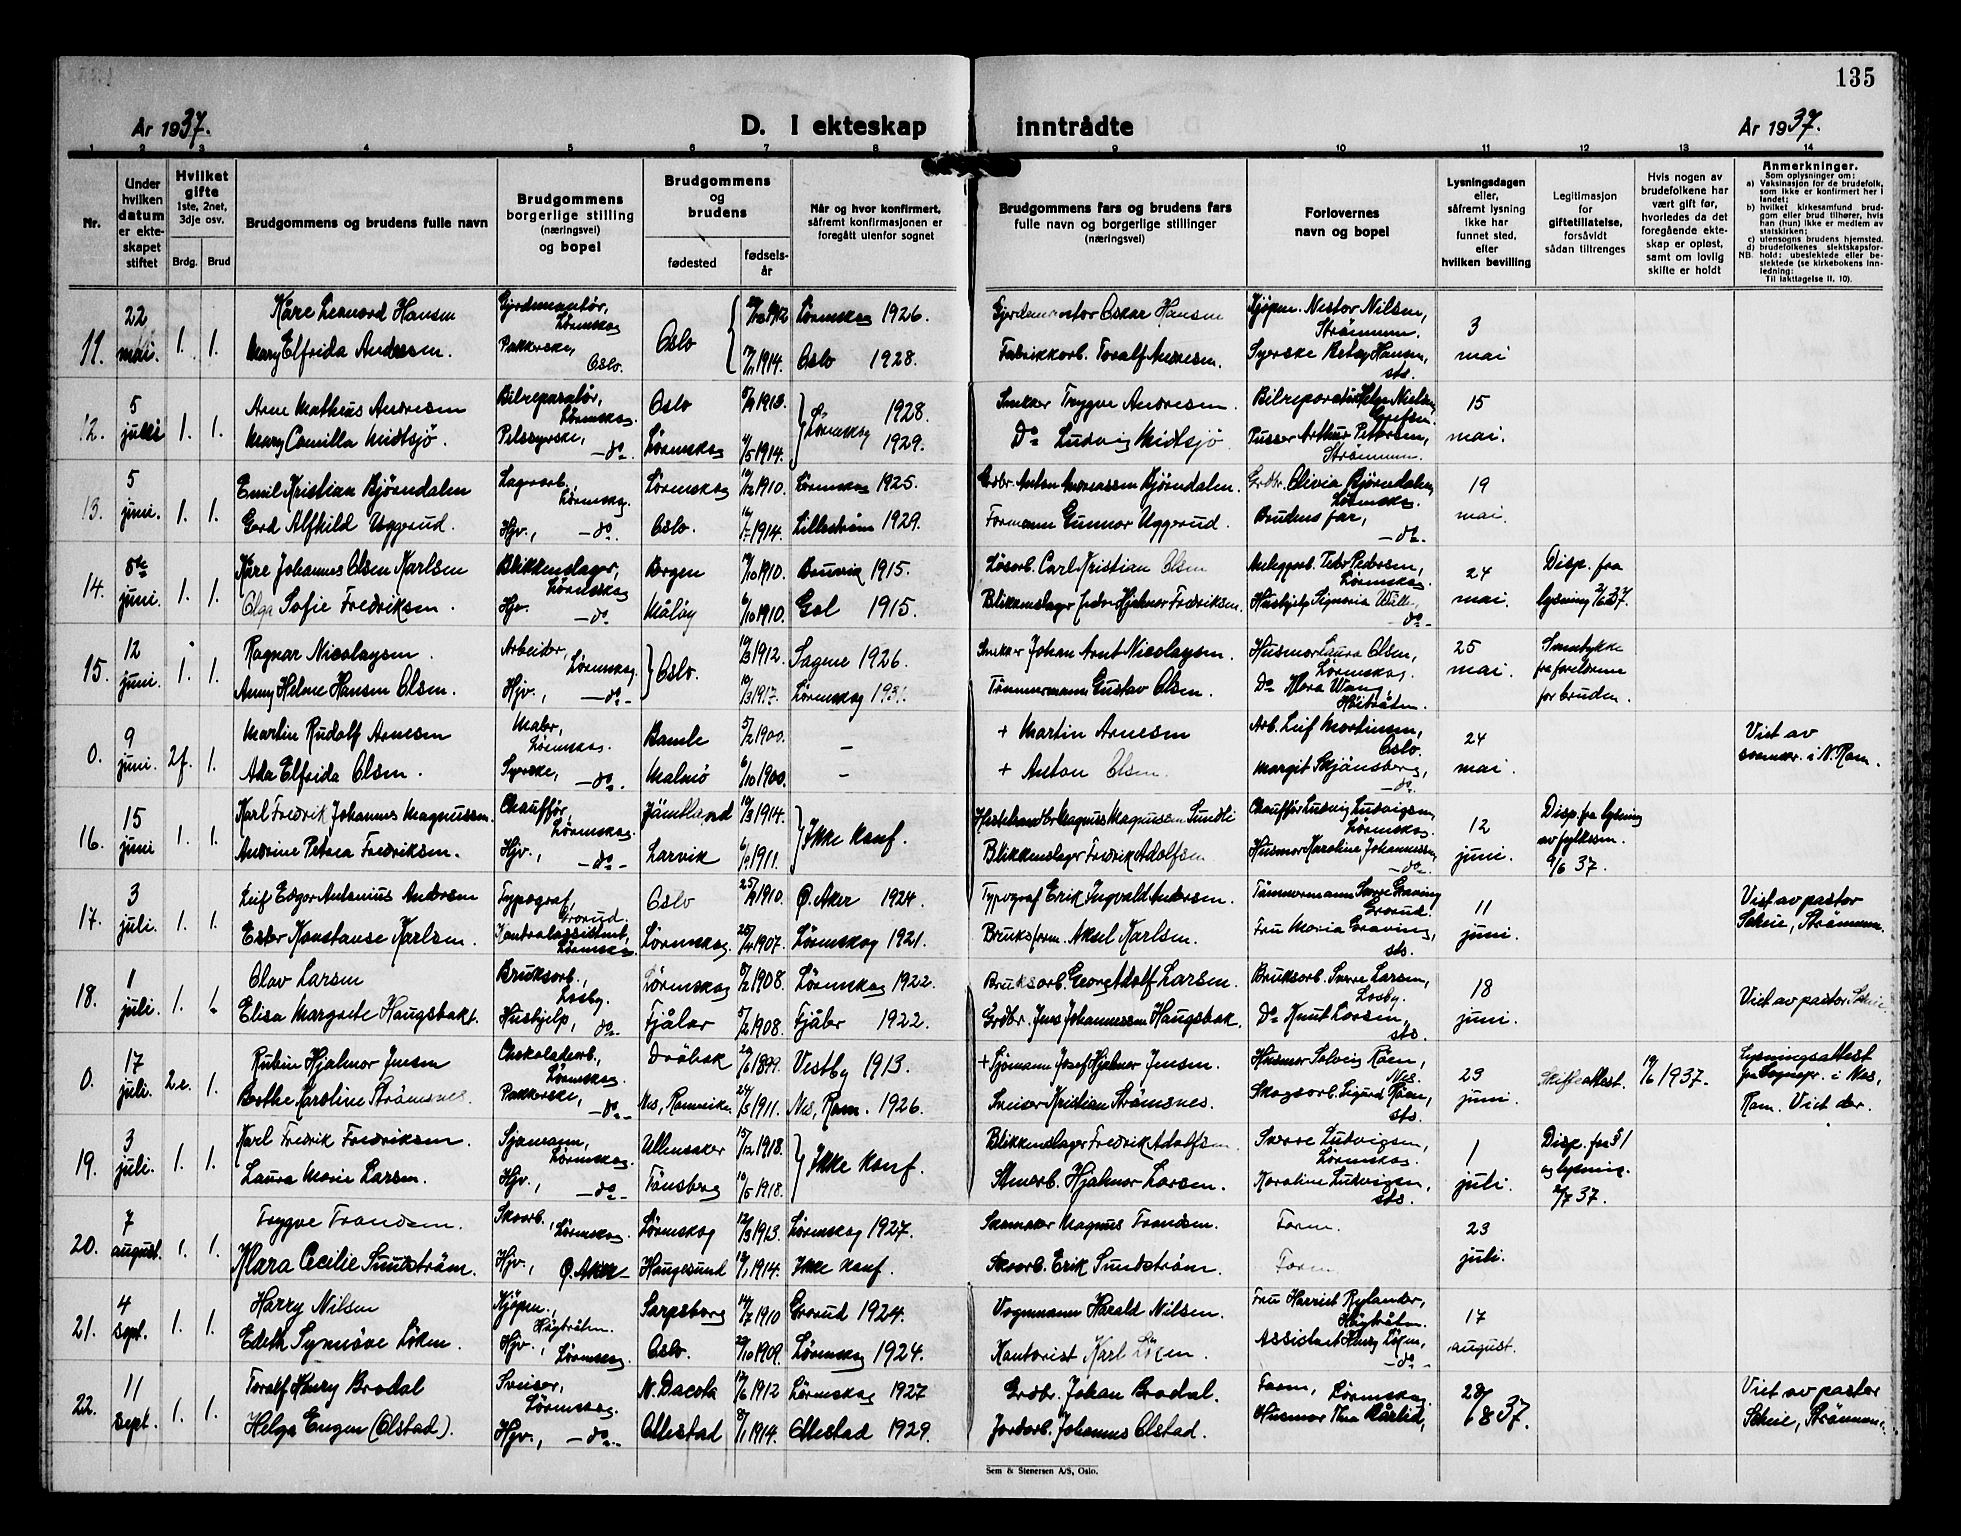 135
År 1937.
D. I ekteskap inntrådte
År 1937.
1 2 3 4 5 6 7 8 9 10 11 12 13 14
Nr.
Under hvilken datum er ekteskapet stiftet
Hvilket gifte 1ste, 2net, 3dje osv.
Brdg. Brud
Brudgommens og brudens fulle navn
Brudgommens borgerlige stilling (næringsvei) og bopel
Brudgommens og brudens
fødested
fødselsår
Når og hvor konfirmert, såfremt konfirmasjonen er foregått utenfor sognet
Brudgommens fars og brudens fars fulle navn og borgerlige stillinger (næringsvei)
Forlovernes navn og bopel
Lysningsdagen eller, såfremt lysning ikke har funnet sted, efter hvilken bevilling
Legitimasjon for giftetillatelse, forsåvidt sådan tiltrenges
Hvis nogen av brudefolkene har vært gift før, hvorledes da det foregående ekteskap er opløst, samt om lovlig skifte er holdt
Anmerkninger.
Som oplysninger om:
a) Vaksinasjon for de brudefolk, som ikke er konfirmert her i landet;
b) hvilket kirkesamfund brudgom eller brud tilhører, hvis han (hun) ikke er medlem av statskirken;
c) utensogns brudens hjemsted.
d) brudefolkenes slektskapsforhold: ubeslektede eller beslektede (se kirkebokens innledning:
NB.
Til iakttagelse II. 10).
11. 22 mai. 1. 1. Kåre Leonard Hansen Lørenskog Oslo 1912 Lørenskog 1926. Oskar Hansen Kjøpm. Nestor Nilsen, Strømmen. 3
Mary Elfrida Andresen. Pakkerske, Oslo. 1914. Oslo 1928. Fabrikkarb. Toralf Andresen. Syerske Betsy Hansen, sts. mai
12. 5 juni 1. 1. Arne Mathius Andresen Bilreparatør, Lørenskog. Oslo 1913. Lørenskog 1928. Snekker Trygve Andresen. Bilreparatør Helge Nielsen, Grefsen. 15
Mary Camilla Midtsjø. Pelssyerske, -do-. Lørenskog 1914. 1929. Do Ludvig Midtsjø Pusser Arthur Pettersen, Strømmen. mai.
13. 5 juni. 1. 1. Emil Kristian Bjørndalen Lagerarb., Lørenskog. Lørenskog 1910. Lørenskog 1925. Grdbr. Anton Andreassen Bjørndalen. Grdbr. Olivia Bjørndalen, Lørenskog. 19
Gerd Alfhild Uggerud. Hjv., -do. Oslo. 1914. Lillestrøm 1929. Formann Gunnar Uggerud. Brudens far, -do-. mai.
14. 5te juni. 1. 1. Kåre Johannes Olsen Karlsen Blikkenslager, Lørenskog Bergen 1910. 1915. Løsarb. Carl Kristian Olsen Peder Pedersen, Lørenskog 24 Disp. fra
Olga Sofie Fredriksen. Hjv. -do- Måløy 1910. Gol 1915. Blikkenslager Hjalmar Fredriksen. Hushjelp -do- mai. lysning 37.
15. 12 juni. 1. 1. Ragnar Nicolaysen. Arbeider, Lørenskog. Oslo. 1912. Sagene 1926. Snekker Johan Arnt Nicolaysen. Husmor Laura Olsen, Lørenskog. 25 Samtykke
Anny Helene Hansen Olsen. Hjv., -do-. 1917. Lørenskog 1931. Tømmermann Gustav Olsen. Do mai. fra foreldrene for bruden.
0. 9 juni. 2f. 1. Martin Rudolf Arnesen Maler, Lørenskog. Bamle 5/2 1900. - + Martin Arnesen Arb. Leif Mortinsen, Oslo. 24 Viet av
Ada Elfrida Olsen. Syerske, -do-. Malmø 6/10 1900. - + Anton Olsen. Margit Skjønsberg, -do-. mai.
16. 15 juni 1. 1. Karl Fredrik Johannes Magnussen. Chauffør, Lørenskog. Jämtland 1914. Ikke konf. Magnus Magnussen Chauffør Ludvig Ludvigsen, Lørenskog. 12 Disp. fra lysning
Andrine Petrea Fredriksen. Hjv., -do- Larvik 1911. Blikkenslager Fredrik Adolfsen Husmor Karoline Johannessen, -do-. juni. av fylkesm. 9/6 37.
17. 3 juli. 1. 1. Leif Edgar Antonius Andersen Typograf, Grorud. Oslo 1910. Ø. Aker 1924. Typograf Erik Ingvald Andersen. Tømmermann Sverre Graving Grorud. 11 Viet av pastor
Ester Konstanse Karlsen. Kontorassistent, Lørenskog Lørenskog. 1907. Lørenskog 1921. Bruksform. Aksel Karlsen. Fru Maria Graving, sts. juni. Scheie, Strømmen.
18. 1 juli. 1. 1. Olav Larsen Bruksarb., Losby. Lørenskog 1908. Lørenskog 1922. Bruksarb. Georg Adolf Larsen. Bruksarb. Sverre Larsen, Losby. 18 Viet av pastor Scheie
Elisa Margrete Haugsbakk. Hushjelp, do-. Fjåler 1908. Fjåler 1922. Grdbr. Jens Johannessen Haugsbak. Do Knut Larsen, sts. juni.
0. 17 juli. 2e. 1. Rubin Hjalmar Jensen Chokoladearb., Lørenskog. Drøbak 1899. Vestby 1913. + Sjømann Josef Hjalmar Jensen. Husmor Solveig Røen, Nes. 23 Skifteattest. 1937. Lysningsattest
Berthe Karoline Strømsnes. Pakkerske, -do- Nes, Romerike 1911. Nes, Rom. 1926. Kristian Strømsnes. Skogsarb. Sigurd Røen, sts. juni. fra Sognepr. i Nes, Rom. Viet der.
19. 3 juli. 1. 1. Karl Fredrik Fredriksen. Sjømann, Lørenskog. Ullensaker 15/2 1918. Ikke konf. Blikkenslager Fredrik Adolfsen Sverre Ludvigsen, Lørenskog. 1 Disp. fra § 1
Laura Marie Larsen. Hjv., -do- Tønsberg 1918. Stenarb. Hjalmar Larsen. Karoline Ludvigsen, sts. juli. og lysning. 2/7 37.
20. 7 august. 1. 1. Trygve Trondsen. Skoarb., Lørenskog. Lørenskog 12/3 1913. Lørenskog 1927. Skomaker Magnus Trondsen. Form. 23
Klara Cecilie Sundstrøm. Hjv., Ø. Aker Haugesund 1914. Ikke konf. Skoarb. Erik Sundstrøm. Form. juli.
21. 4 sept. 1. 1. Harry Nilsen Kjøpm., Høybråten. Sarpsborg 14/7 1910 Grorud 1924. Vognmann Harald Nilsen. Fru Harriet Rylander, Høybråten. 17
Edith Synnøve Løken. Hjv., Lørenskog Oslo. 1909. Lørenskog 1924. Kontorist Karl Løken. Assistent Henry Løken, -do- august.
22. 11 sept. 1. 1. Toralf Henry Brodal Sveiser, Lørenskog. N. Dacota 1912 Lørenskog 1927 Grdbr. Johan Brodal. Form, Lørenskog. 28/8 37. Viet av pastor
Helga Engen (Olstad). Hjv., -do-. Ottestad 1914. Ottestad 1929. Jordarb. Johannes Olstad. Husmor Thea Scheie, Strømmen.
Sem & Stenersen A/S, Oslo.